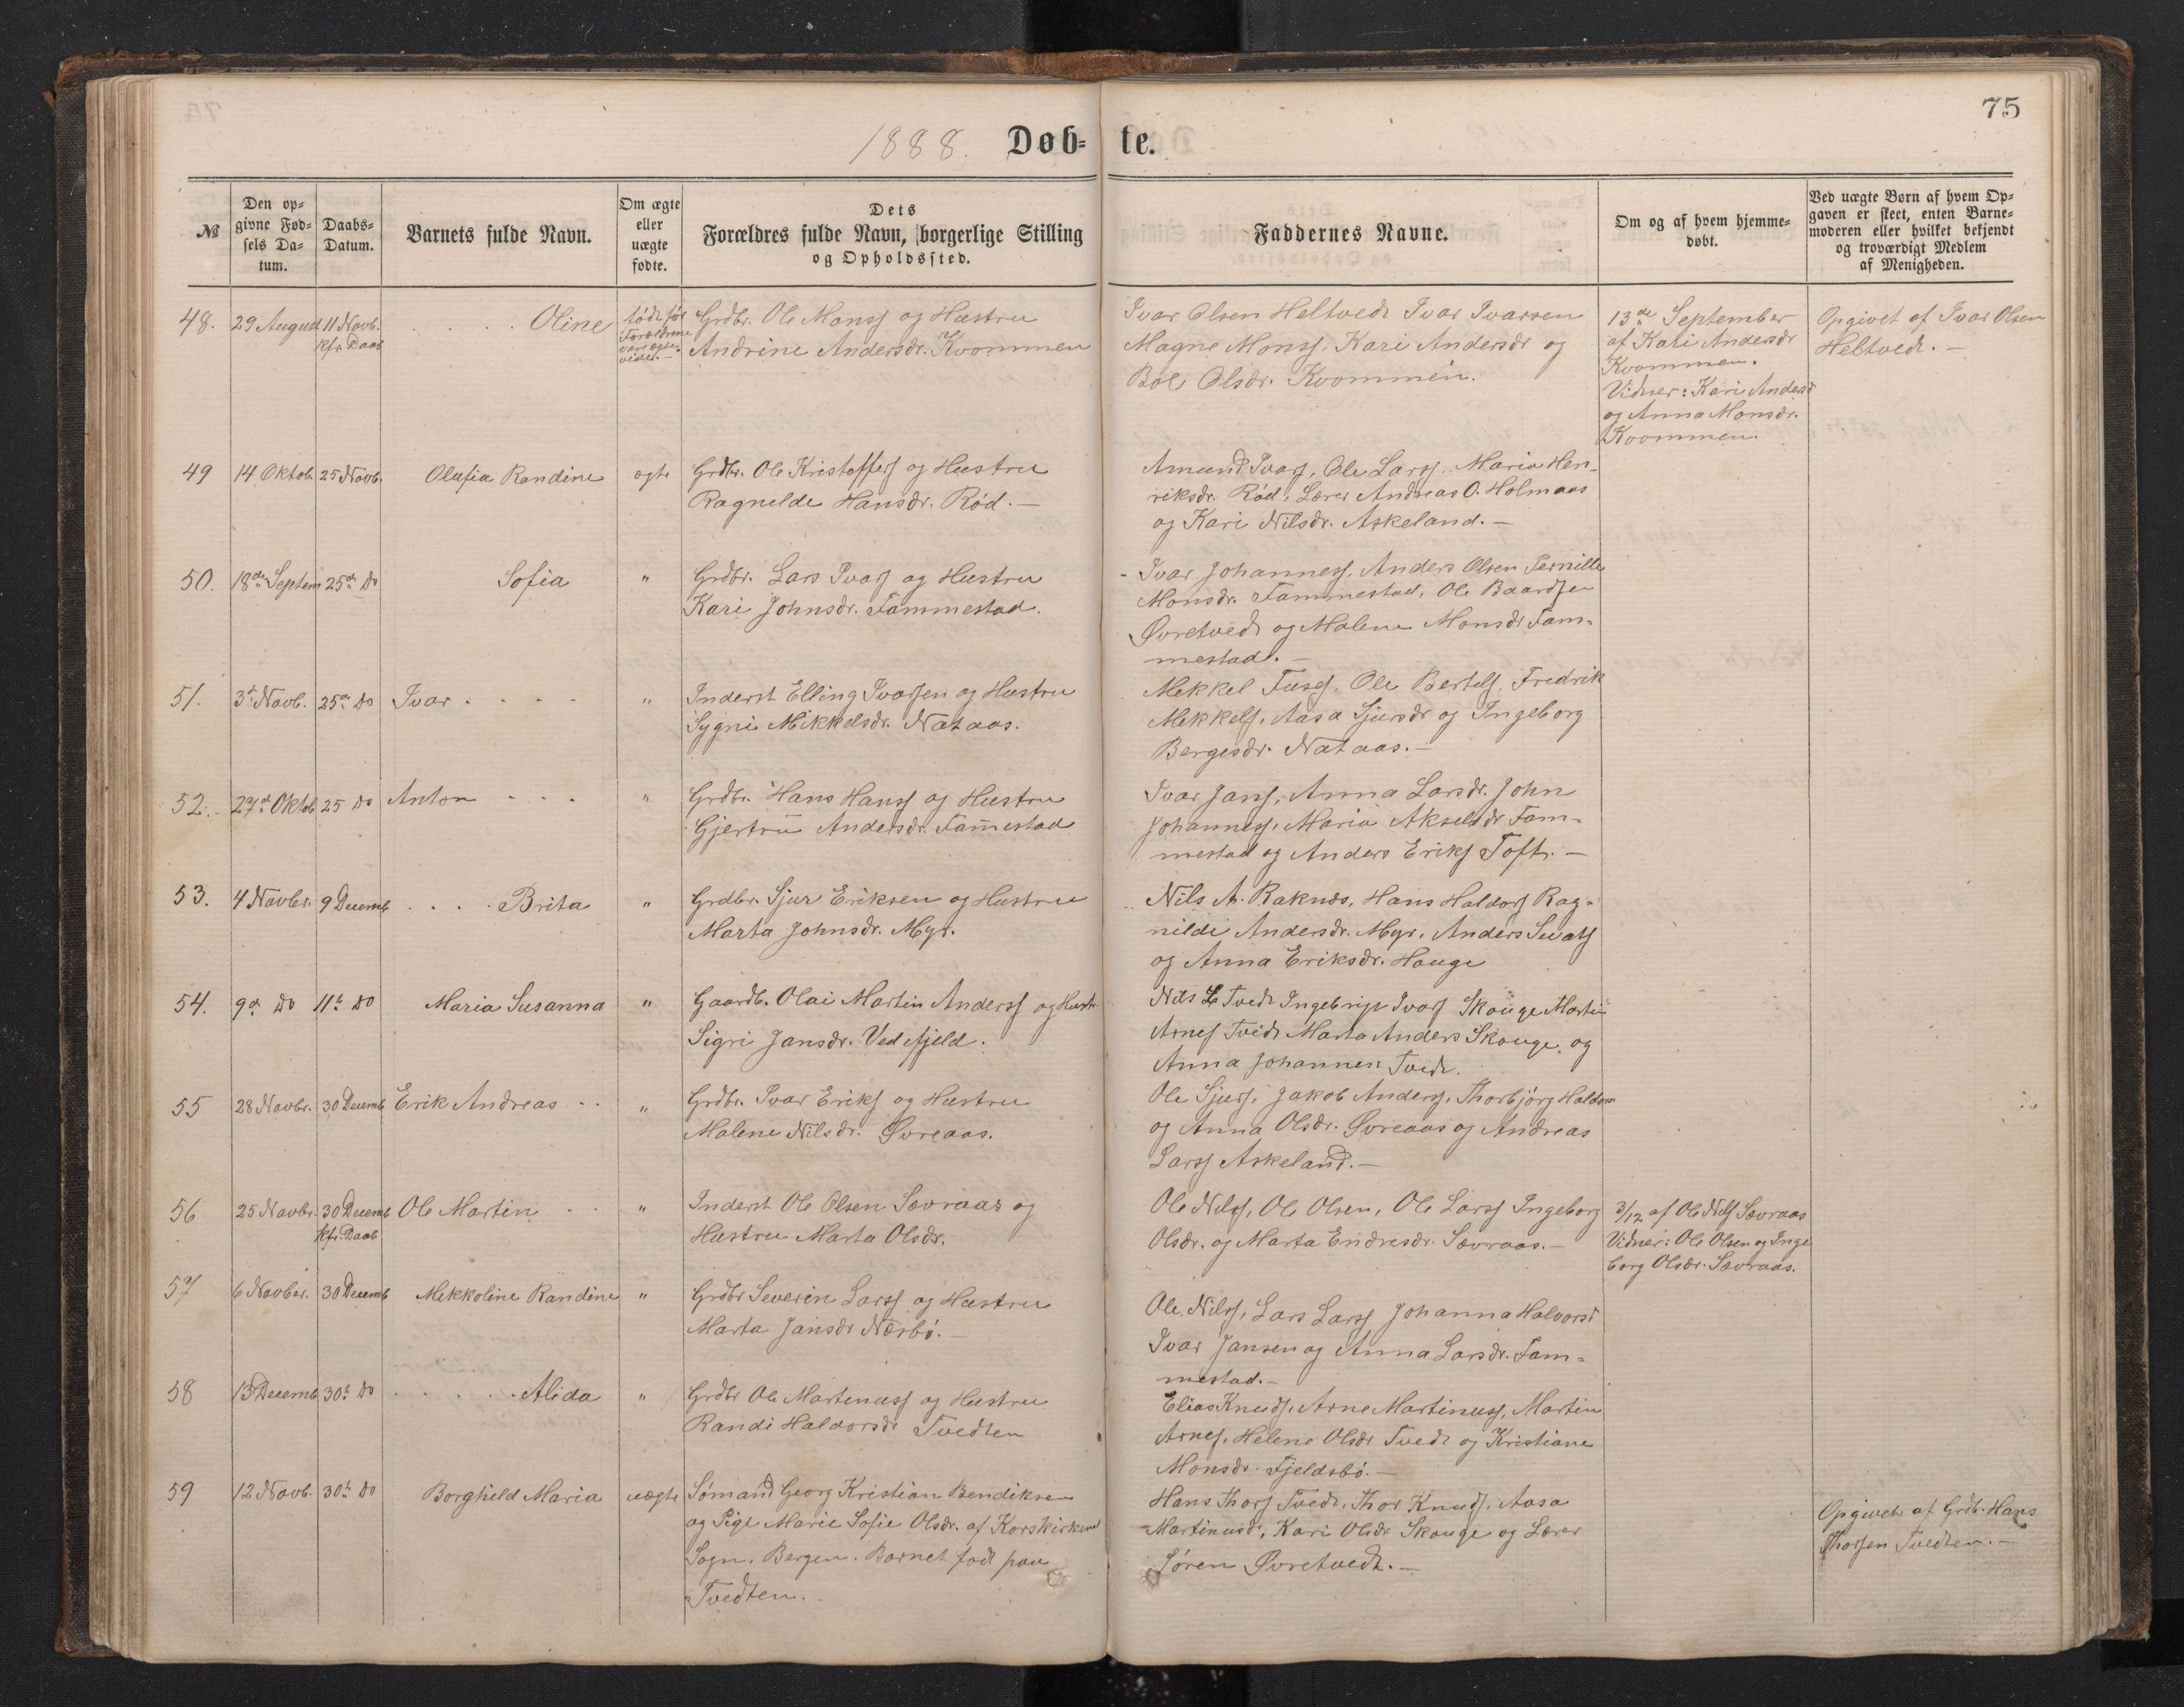 75
1888. Døb- te.
№
Den op-
givne Fød-
sels Da-
tum.
Daabs-
Datum.
Barnets fulde Navn.
Om ægte
eller
uægte
fødte.
Dets
Forældres fulde Navn, borgerlige Stilling
og Opholdssted.
Faddernes Navne.
Om og af hvem hjemme-
døbt.
Ved uægte Børn af hvem Op-
gaven er skeet, enten Barne-
moderen eller hvilket bekjendt
og troværdigt Medlem
af Menigheden.
48. 29 August 11 Novb.
kfr. Daab
Oline
født før
Forældrene
vare egte-
viede.-
Grdbr. Ole Monss og Hustru
Andrine Andersdr. Kvommen
Ivar Olsen Heltvedt Ivar Ivarsen
Magne Monss. Kari Andersdr og
Boe Olsdr. Kvommen.
13de September
af Kari Andersdr
Kvommen.
Vidner: Kari Andersd
og Anna Monsdr.
Kvommen.
Opgivet af Ivar Olsen
Heltvedt.-
49 14 Oktob. 25 Novb. Olufia Randine ogte
Grdbr. Ole Kristoffers og Hustru
Ragnelde Hansdr. Rød.-
Amund Ivars, Ole Larss. Maria Hen-
riksdr. Rød, Lærer Andreas O. Holmaas
og Kari Nilsdr. Askeland.-
50. 18de Septem 25de Do Sofia "
Grdbr. Lars Ivars og Hustru
Kari Johnsdr. Fammestad.
Ivar Johanness, Anders Olsen Pernille
Monsdr. Fammestad, Ole Baardsen
Øvretvedt og Malene Monsdr Fam-
mestad.-
51. 3de Novb. 25de Do Ivar "
Inderst Elling Ivarsen og Hustru
Sygni Mikkelsdr. Nataas.
Mekkel Tuess, Ole Bertels, Fredrik
Mekkels, Aasa Sjursdr og Ingeborg
Bergesdr. Nataas.-
52. 27de Oktob 25 Do Anton "
Grdbr. Hans Hanss og Hustru
Gjertru Andersdr. Fam̅estad
Ivar Jans, Anna Larsdr. John
Johanness, Maria Akselsdr Fam-
mestad og Anders Eriks Toft.-
53. 4 Novbr. 9 Decemb Brita "
Grdbr. Sjur Eriksen og Hustru
Marta Johnsdr. Myr.
Nils A. Raknes, Hans Haldors Rag-
nilde Andersdr. Myr, Anders Sivats
og Anna Eriksdr. Hauge
54. 9de Do 11te Do Maria Susanna "
Gaardb. Olai Martin Anderss og Hustr.
Sigri Jansdr. Vedefjeld.
Nils L Tvedt Ingebrigt Ivars Skauge Martin
Arnes Tvedt Marta Anders Skauge, og
Anna Johannes Tvedt.
55 28 Novbr. 30 Decemb Erik Andreas "
Grdbr. Ivar Eriks og Hustru
Malene Nilsdr. Øvreaas.
Ole Sjurs, Jakob Anders, Thorbjørg Haldors
og Anna Olsdr. Øvreaas og Andreas
Larss Askeland.-
56 25 Novbr. 30 Decemb
kfr. Daab
Ole Martin "
Inderst Ole Olsen Sævraas og
Hustru Marta Olsdr.
Ole Nilss, Ole Olsen, Ole Larss Ingeborg
Olsdr. og Marta Endresdr. Sævraas.-
3/12 af Ole Nils Sævraas
Vidner: Ole Olsen og Inge
borg Olsdr. Sævraas.
57 6 Novber. 30 Decemb Mekkoline Randine "
Grdbr Severin Larss og Hustru
Marta Jansdr Næsbø.-
Ole Nilss, Lars Larss Johanna Halvorsd
Ivar Jansen og Anna Larsdr. Fam-
mestad.-
58 13 Decemb 30te Do Alida "
Grdbr Ole Martinuss og Hustru
Randi Haldorsdr Tvedten
Elias Knuds, Arne Martinuss, Martin
Arnes, Helene Olsdr Tvedt og Kristiane
Monsdr. Fjeldsbø.-
59 12 Novb. 30te Do Borghild Maria uægte
Sømand Georg Kristian Bendiksen
og Pige Marie Sofie Olsdr. af Korskirkens
Sogn, Bergen. Barnet født paa
Tvedten.
Hans Thors Tvedt, Thor Knuds, Aasa
Martinusdr, Kari Olsdr Skauge og Lærer
Søren Øvretvedt.-
Opgivet af Grdb. Hans
Thorsen Tvedten.-